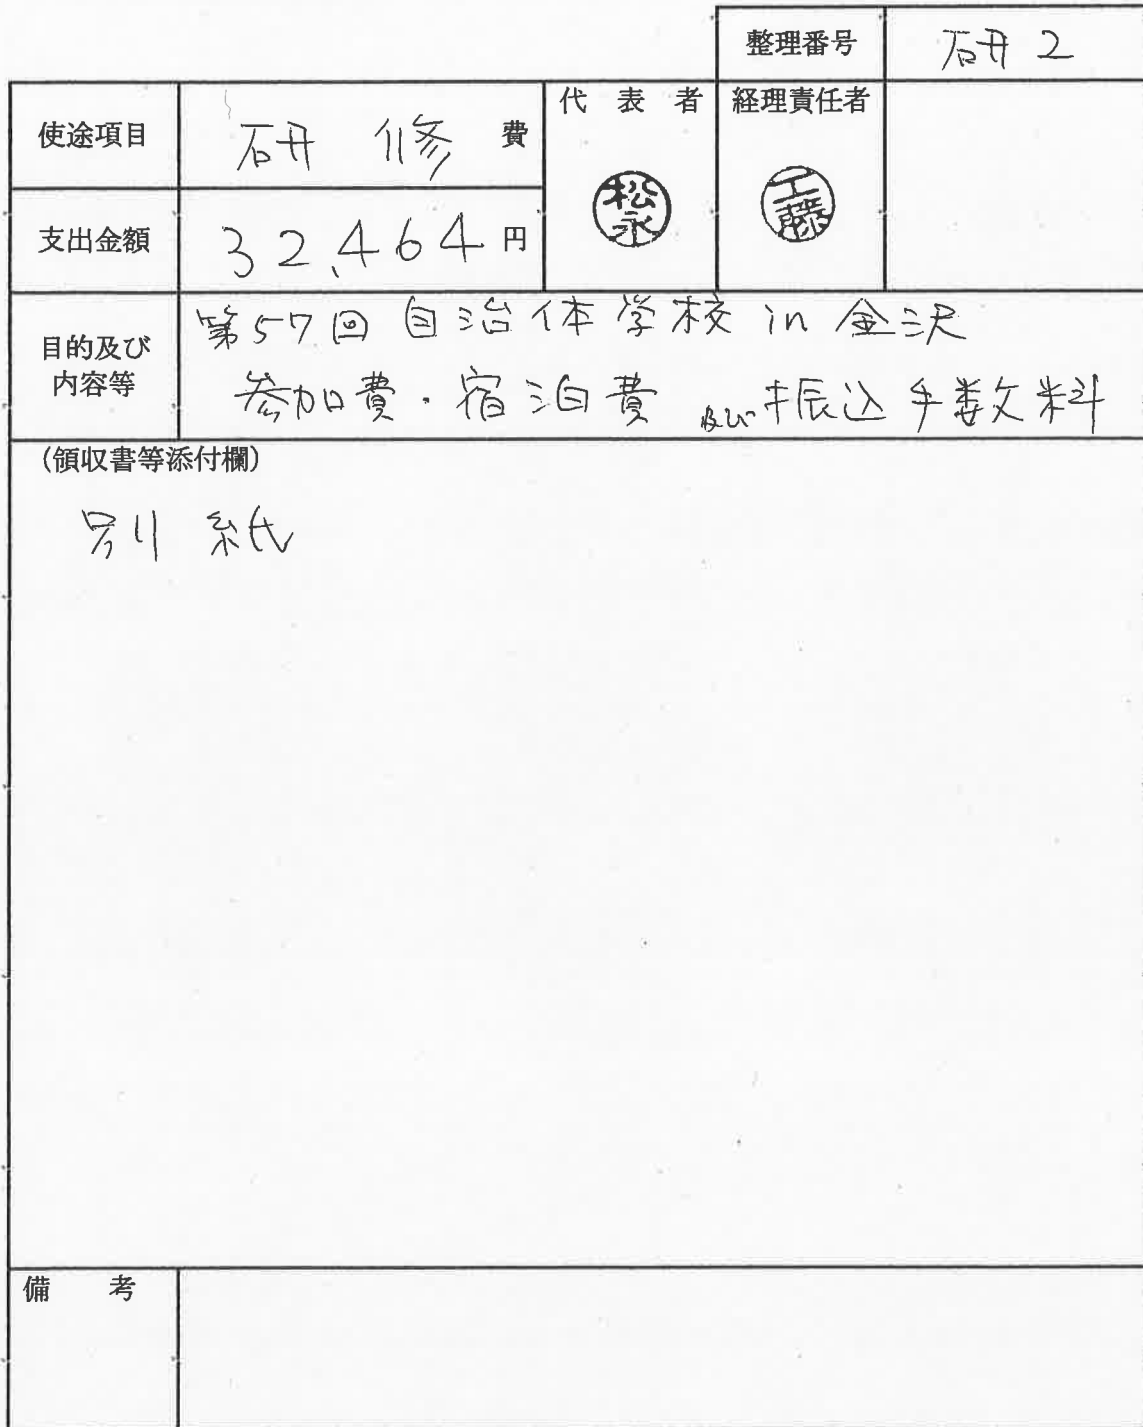 整理番号 研2
使途項目 研修費
代表者 経理責任者
松永 工藤
支出金額 32,464円
目的及び内容等
第57回 自治体学校 in 金沢
参加費・宿泊費 及び振込手数料
(領収書等添付欄)
別紙
備考